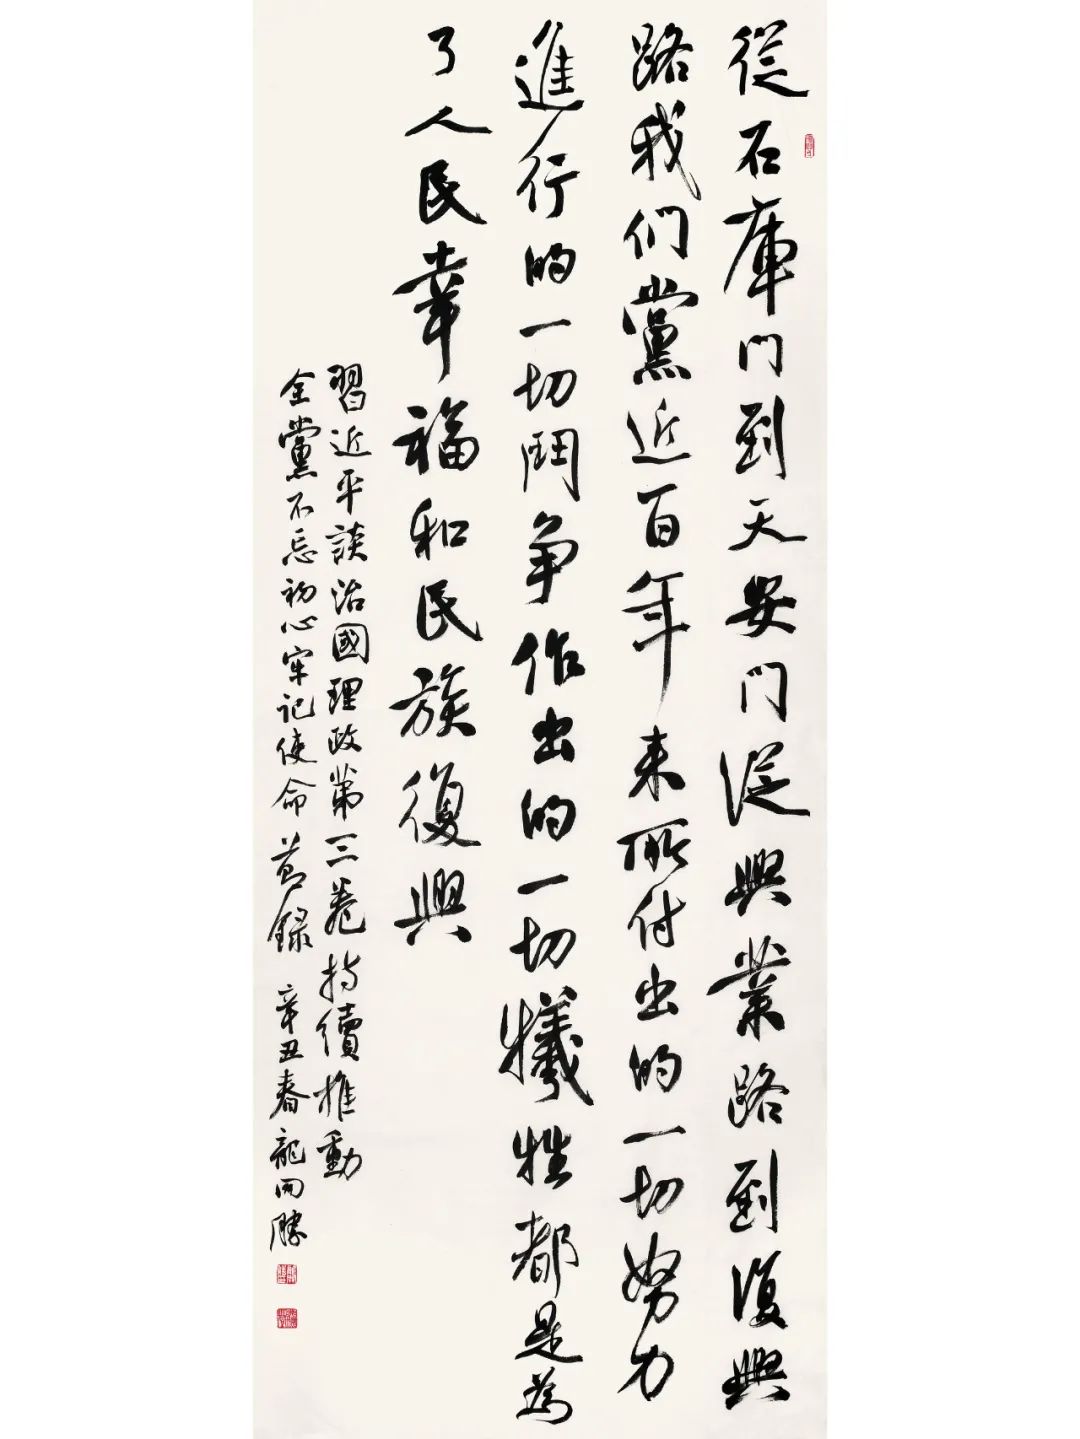 從石庫門到天安門從興業路到復興
路我们黨近百年来所付出的一切努力
進行的一切鬥争作出的一切犧牲都是為
了人民幸福和民族復興
習近平談治國理政第三卷持續推動
全黨不忘初心牢記使命節録 辛丑春龍開勝